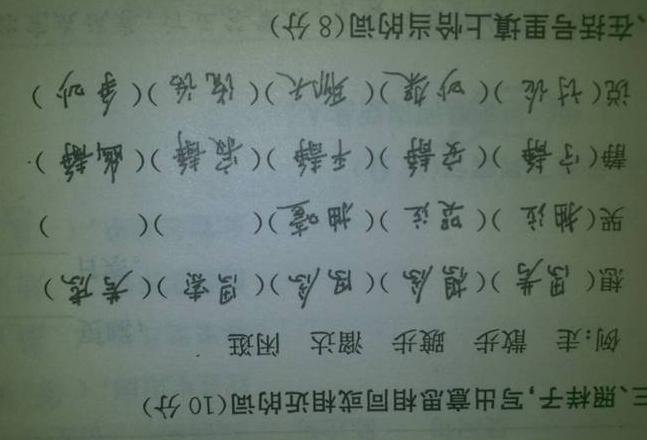 三、照样子,写出意思相同或相近的词(10分)
例:走 散步 踱步 溜达 闲逛
想(思考)(想念)(思念)(思索)(考虑)
哭(抽泣)(哭泣)(抽噎)( )( )
静(宁静)(安静)(平静)(寂静)(幽静)
说(讨论)(吵架)(聊天)( )(争吵)
、在括号里填上恰当的词(8分)